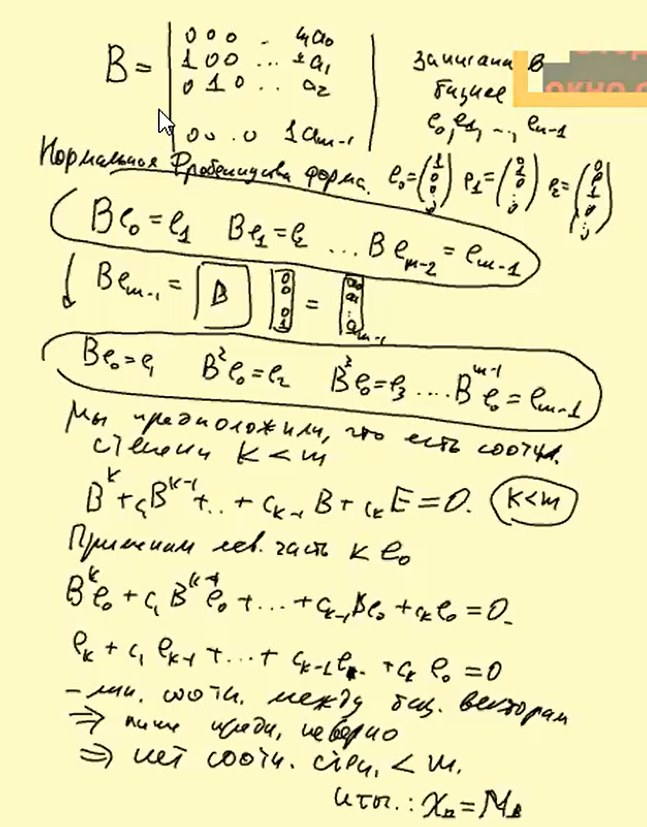 B = | 0 0 0 .. a₀ |
| 1 0 0 ... a₁ |
| 0 1 0 .. a₂ |
| 0 0 . 0 1 aₘ₋₁ |
записана в
базисе
e₀, e₁, ..., eₘ₋₁
окно
Нормальная Фробениусова форма. e₀ = (1 0 0 :) e₁ = (0 1 0 :) e₂ = (0 0 1 0 :)
Be₀ = e₁ Be₁ = e₂ ... Beₘ₋₂ = eₘ₋₁
Beₘ₋₁ = [B] [0 0 : 1] = [a₀ a₁ : aₘ₋₁]
Be₀ = e₁ B²e₀ = e₂ B³e₀ = e₃ .... Bᵐ⁻¹e₀ = eₘ₋₁
Мы предположили, что есть соотн.
степени k < m
Bᵏ + c₁Bᵏ⁻¹ + .. + cₖ₋₁B + cₖE = 0. k < m
Применим лев. часть к e₀
Bᵏe₀ + c₁Bᵏ⁻¹e₀ + ... + cₖ₋₁Be₀ + cₖe₀ = 0
eₖ + c₁eₖ₋₁ + ... + cₖ₋₁e₁ + cₖe₀ = 0
- лин. соотн. между баз. векторам
⇒ наше предп. неверно
⇒ нет соотн. степ. < m.